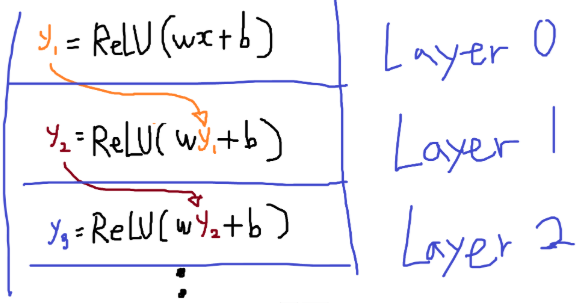 y₁ = ReLU(wx+b) Layer 0
y₂ = ReLU(wy₁+b) Layer 1
y₃ = ReLU(wy₂+b) Layer 2
⋮